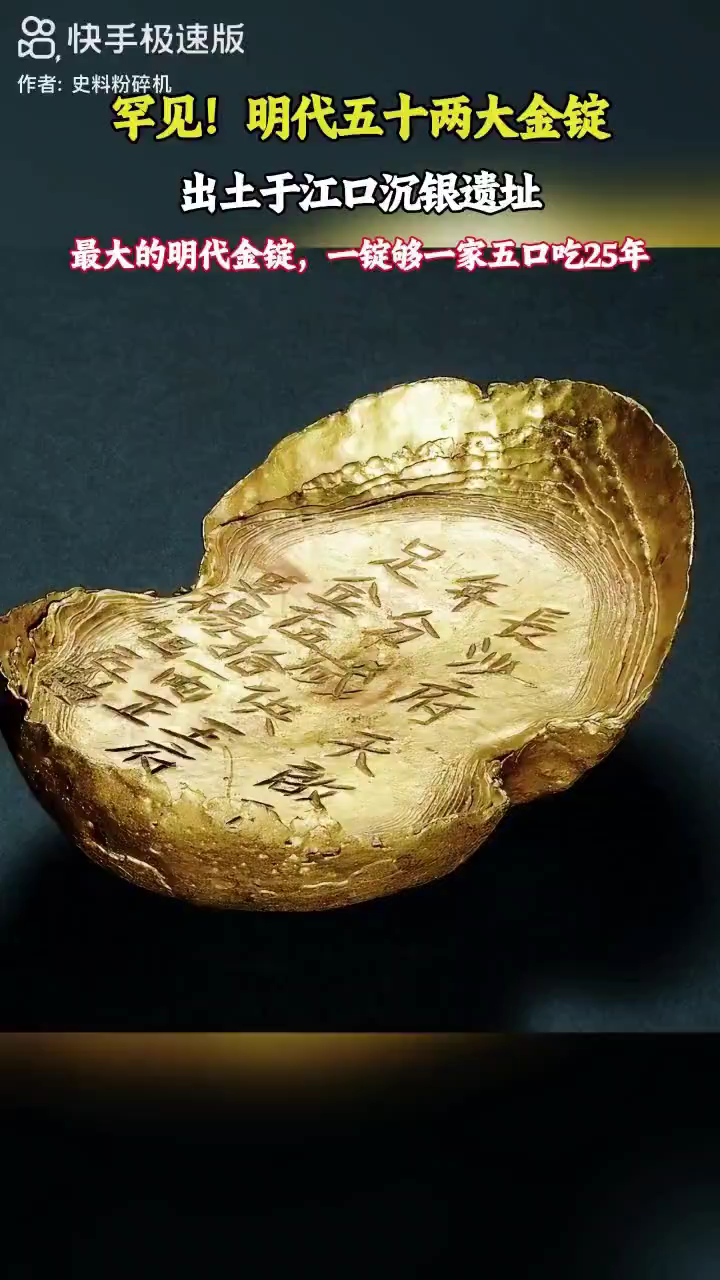 快手极速版
作者: 史料粉碎机
罕见！明代五十两大金锭
出土于江口沉银遗址
最大的明代金锭，一锭够一家五口吃25年
長沙府天
年分王府
足金伍拾両正